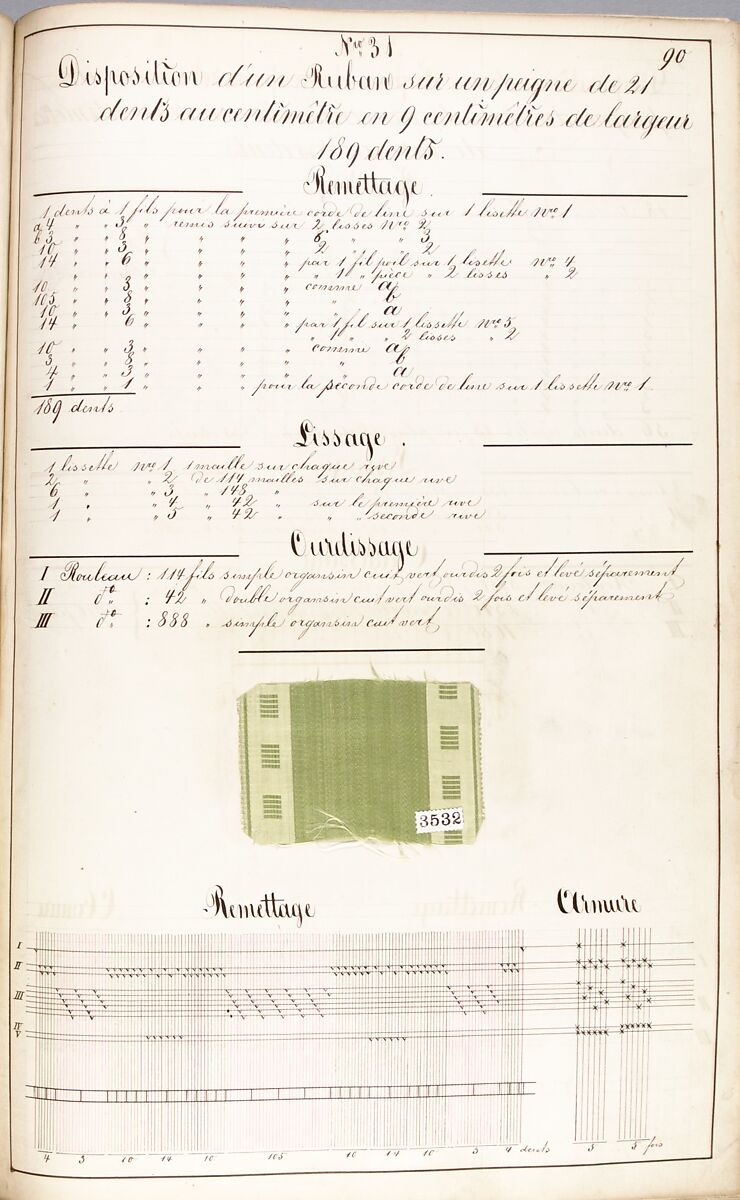 Nro 31
90
Disposition d'un Ruban sur un peigne de 21
dents au centimêtre en 9 centimêtres de largeur
189 dents.
Remettage
1 dents à 1 fils pour la première corde de line sur 1 lisette Nro 1
a 4 " " 3 " remis suivi sur 2 lisses Nro 2
b 3 " " 8 " " " " 6 " " 3
10 " " 3 " " " " 2 " " 2
14 " " 6 " " " " par 1 fil poil sur 1 lisette Nro 4
" " " " " 1 " pièce " 2 lisses " 2
10 " " 3 " " " " comme a
105 " " 8 " " " " " b
10 " " 3 " " " " " a
14 " " 6 " " " " par 1 fil sur 1 lissette Nro 5
" " 1 " " 2 lisses " 2
10 " " 3 " " " " comme a
3 " " 8 " " " " " b
4 " " 3 " " " " " a
1 " " 1 " " " " pour la seconde corde de line sur 1 lissette Nro 1.
189 dents
Lissage.
1 lissette Nro 1 1 maille sur chaque rive
2 " " 2 de 114 mailles sur chaque rive
6 " " 3 " 148 "
1 " " 4 " 42 " sur le première rive
1 " " 5 " 42 " " " seconde rive
Ourdissage
I Rouleau : 114 fils simple organsin cuit vert ourdis 2 fois et levé séparement
II do " : 42 " double organsin cuit vert ourdis 2 fois et levé séparement
III do " : 888 " simple organsin cuit vert
3532
Remettage
Armure
I
II
III
IV
V
4 3 10 14 10 105 10 14 10 3 4 dents
5 5 fois